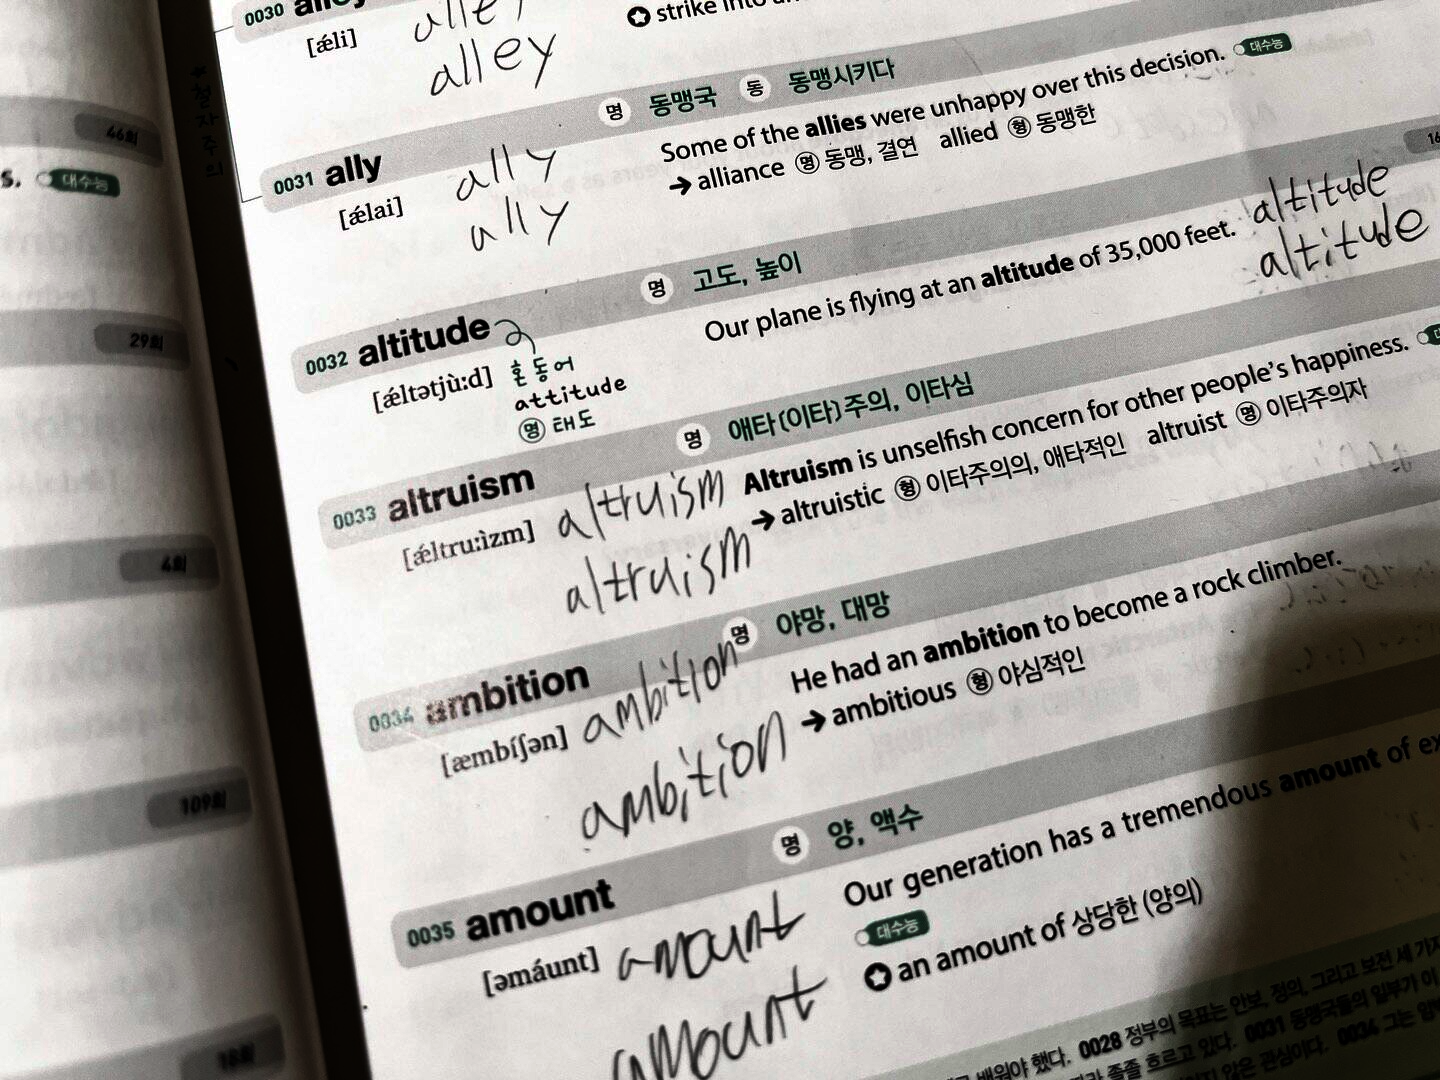 0030 alley
[ǽli]
alley
alley
strike into an
명 동맹국 동 동맹시키다
0031 ally
[ǽlai]
ally
ally
Some of the allies were unhappy over this decision. 대수능
→ alliance 명 동맹, 결연 allied 형 동맹한
명 고도, 높이
0032 altitude
[ǽltətjù:d]
혼동어
attitude
명 태도
Our plane is flying at an altitude of 35,000 feet.
altitude
altitude
명 애타(이타)주의, 이타심
0033 altruism
[ǽltru:ìzm]
altruism
altruism
Altruism is unselfish concern for other people's happiness.
→ altruistic 형 이타주의의, 애타적인 altruist 명 이타주의자
명 야망, 대망
0034 ambition
[æmbíʃən]
ambition
ambition
He had an ambition to become a rock climber.
→ ambitious 형 야심적인
명 양, 액수
0035 amount
[əmáunt]
amount
amount
Our generation has a tremendous amount of
대수능
an amount of 상당한 (양의)
배워야 했다. 0028 정부의 목표는 안보, 정의, 그리고 보전 세 가지
졸졸 흐르고 있다. 0031 동맹국들의 일부가 이
않은 관심이다. 0034 그는
46회
s. 대수능
29회
4회
109회
18회
철자주의